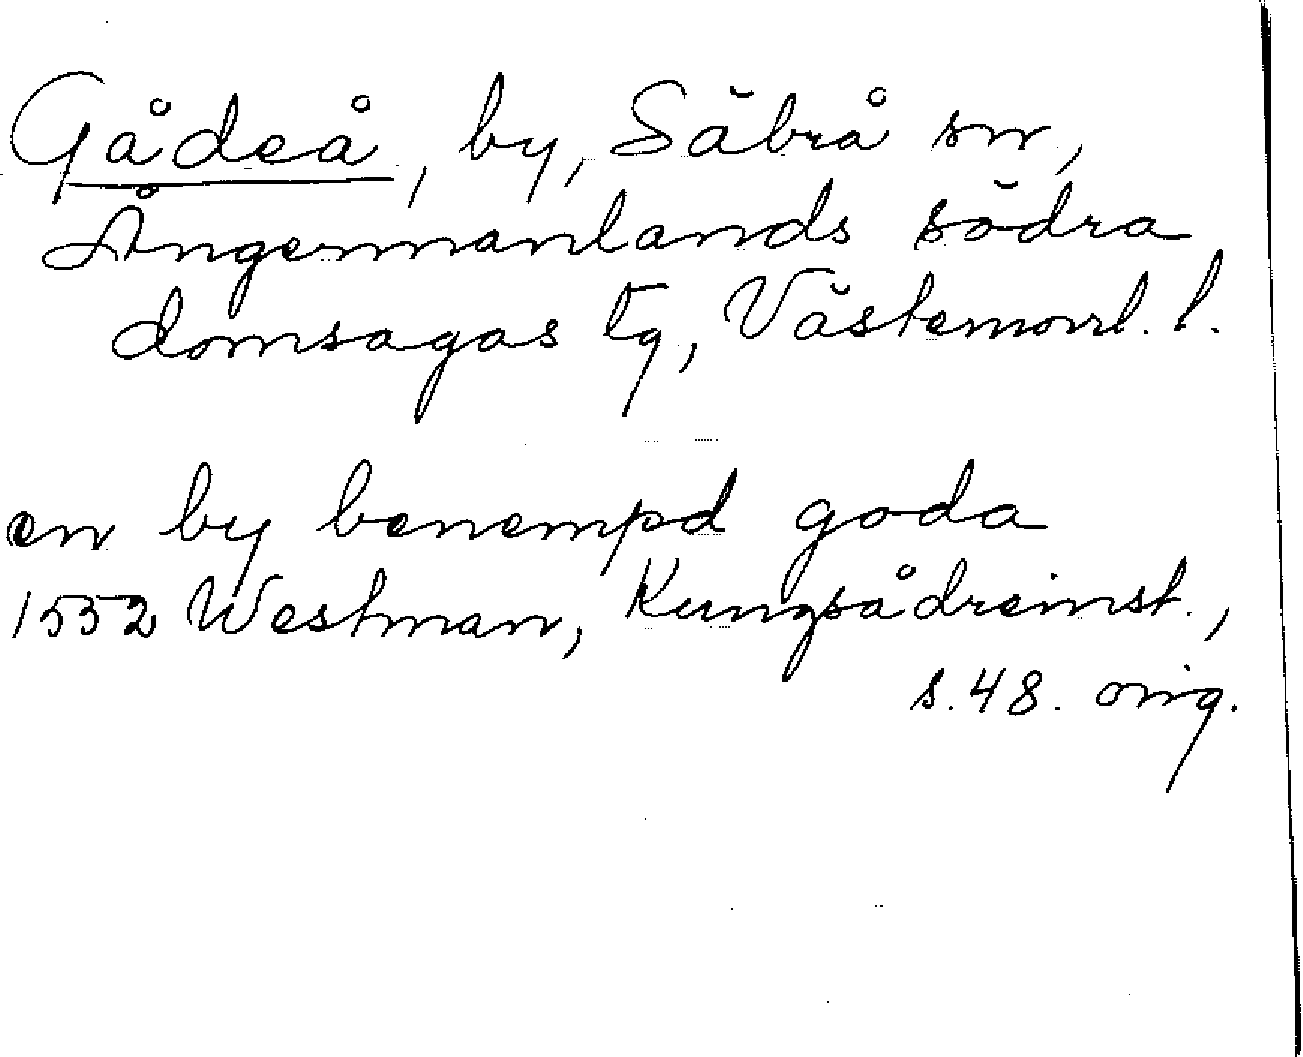 Gådeå, by, Säbrå sn,
Ångermanlands södra
domsagas tg, Västernorrl. l.
en by benempd goda
1552 Westman, Kungsådreinst.,
s. 48. orig.